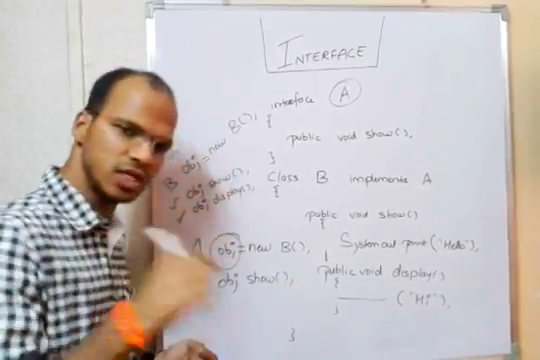 INTERFACE
interface A
{
public void show();
}
Class B implements A
{
public void show()
{
System out print ("Hello");
}
public void display()
{
("Hi");
}
}
B obj = new B();
obj show();
obj display();
A obj = new B();
obj show();